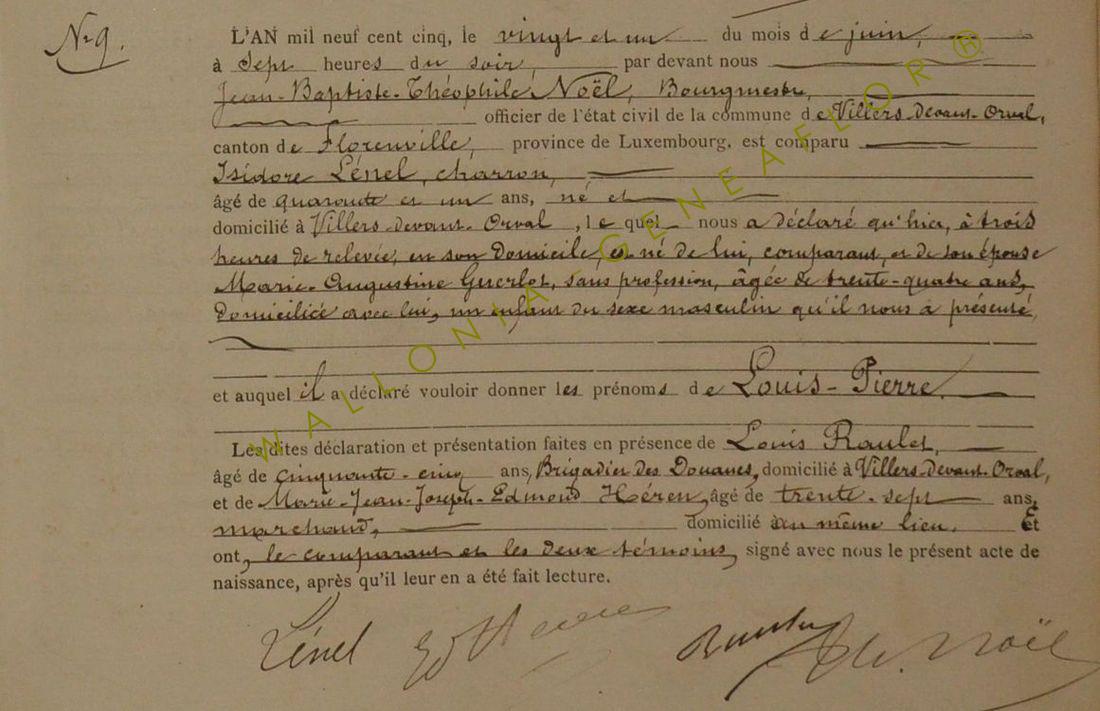 N° 9.
L'AN mil neuf cent cinq, le vingt et un du mois de juin,
à sept heures du soir, par devant nous
Jean-Baptiste-Théophile Noël, Bourgmestre,
officier de l'état civil de la commune de Villers-devant-Orval,
canton de Florenville, province de Luxembourg, est comparu
Isidore Lénel, charron,
âgé de quarante et un ans, né et
domicilié à Villers-devant-Orval, lequel nous a déclaré qu'hier, à trois
heures de relevée, en son domicile, est né de lui, comparant, et de son épouse
Marie-Augustine Guerlot, sans profession, âgée de trente-quatre ans,
domiciliée avec lui, un enfant du sexe masculin qu'il nous a présenté,
et auquel il a déclaré vouloir donner les prénoms de Louis-Pierre.
Les dites déclaration et présentation faites en présence de Louis Raulet,
âgé de cinquante-cinq ans, Brigadier des Douanes, domicilié à Villers-devant-Orval,
et de Marie-Jean-Joseph-Edmond Héren, âgé de trente-sept ans,
marchand, domicilié au même lieu. Et
ont, le comparant et les deux témoins, signé avec nous le présent acte de
naissance, après qu'il leur en a été fait lecture.
Lénel Noël
WALLONIA-GENEAFLOR®